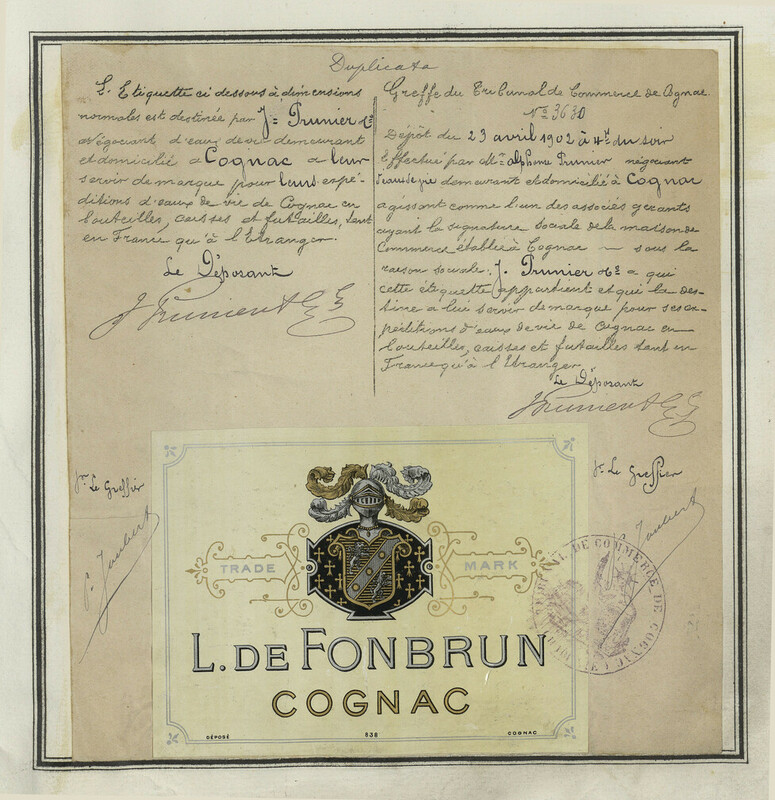 Duplicata
L'Etiquette ci dessous à dimensions
normales est destinée par J. Prunier & Cie
Négociant d'eaux de vie demeurant
et domicilié à Cognac à leur
servir de marque pour leurs expé-
ditions d'eaux de vie de Cognac en
bouteilles, caisses et futailles, tant
en France qu'à l'Etranger.
Le Déposant
J. Prunier & Cie
Greffe du Tribunal de Commerce de Cognac
No 3630
Dépôt du 23 avril 1902 à 4h du soir
Effectué par Mr. alphonse Prunier négociant
d'eaux de vie demeurant et domicilié à Cognac
agissant comme l'un des associés gérants
ayant la signature sociale de la maison de
Commerce établie à Cognac — sous la
raison sociale: J. Prunier & Cie à qui
cette étiquette appartient et qui la des-
tine à lui servir de marque pour ses ex-
péditions d'eaux de vie de Cognac en
bouteilles, caisses et futailles tant en
France qu'à l'Etranger
Le Déposant
J. Prunier & Cie
pr. Le Greffier
Joubert
pr. Le Greffier
Joubert
TRADE MARK
L. DE FONBRUN
COGNAC
DÉPOSÉ 838 COGNAC
DE COMMERCE DE COGNAC